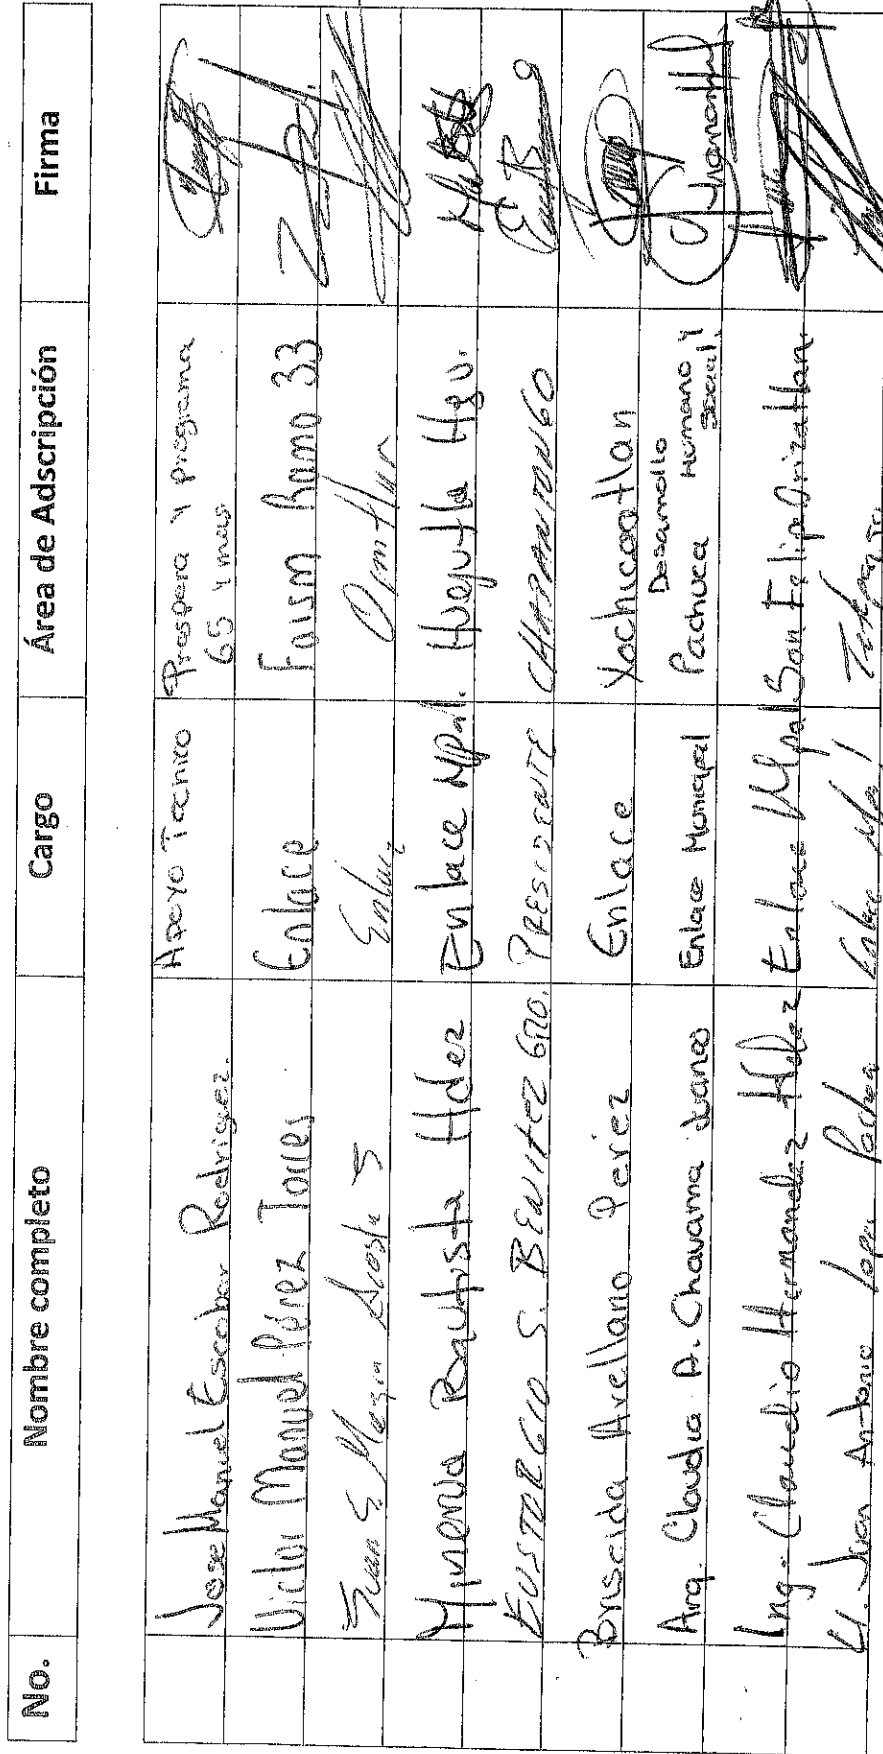 No. Nombre completo Cargo Área de Adscripción Firma
Jose Manuel Escobar Rodriguez. Apoyo Tecnico Prospera y programa
65 y mas.
Victor Manuel Pérez Torres Enlace Faism Ramo 33
Juan Acosta S Enlace
Minerva Bautista Hdez Enlace Mpal. Huejutla Hgo.
EUSTORGIO S. BENITEZ GRO. PRESIDENTE CHAPANTONGO
Briscida Arellano Perez Enlace Xochicoatlan
Desarrollo
Arq. Claudia A. Chavarria Enlace Municipal Pachuca Humano y
Social.
Ing. Claudio Hernandez Hdez Enlace Mpal San Felipe Orizatlan.
Juan Antonio Enlace Mpal